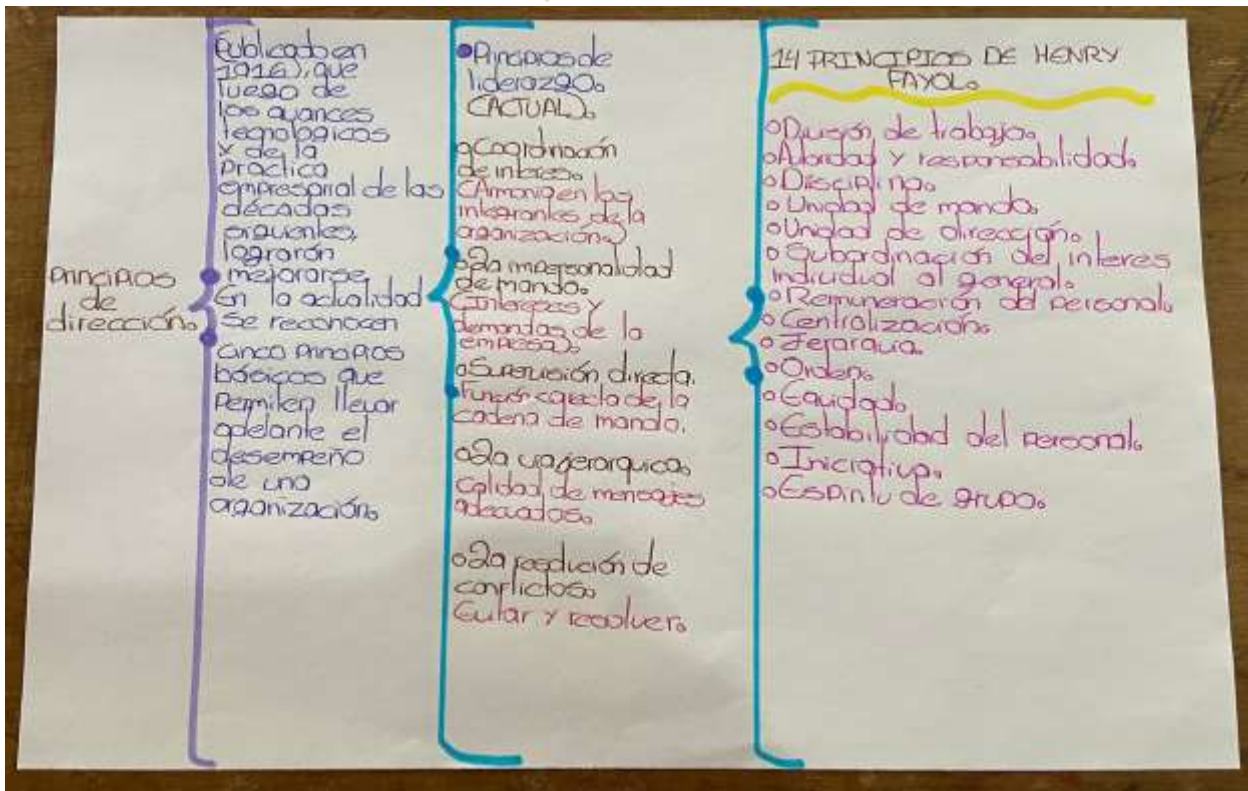 Principios
de
dirección.
Publicado en
1916), que
luego de
los avances
tegnologicos
y de la
Practica
empresarial de las
décadas
siguientes,
lograrón
mejorarse,
En la actualidad
se reconocen
cinco Principios
básicos que
Permiten llevar
adelante el
desempeño
de una
organización.
Principios de
liderazgo.
(ACTUAL).
Coordinación
de interes.
(Armonia en los
integrantes de la
organización.)
La impersonalidad
de mando.
(Intereses y
demandas de la
empresa).
Supervisión directa.
Función correcta de la
cadena de mando.
La via jerarquica.
calidad de mensajes
adecuados.
La resolución de
conflictos.
Evitar y resolver.
14 PRINCIPIOS DE HENRY
FAYOL.
División de trabajo.
Autoridad y responsabilidad.
Disciplina.
Unidad de mando.
Unidad de dirección.
Subordinación del interes
individual al general.
Remuneración del personal.
Centralización.
Jerarquia.
Orden.
Equidad.
Estabilidad del personal.
Iniciativa.
Espiritu de grupo.